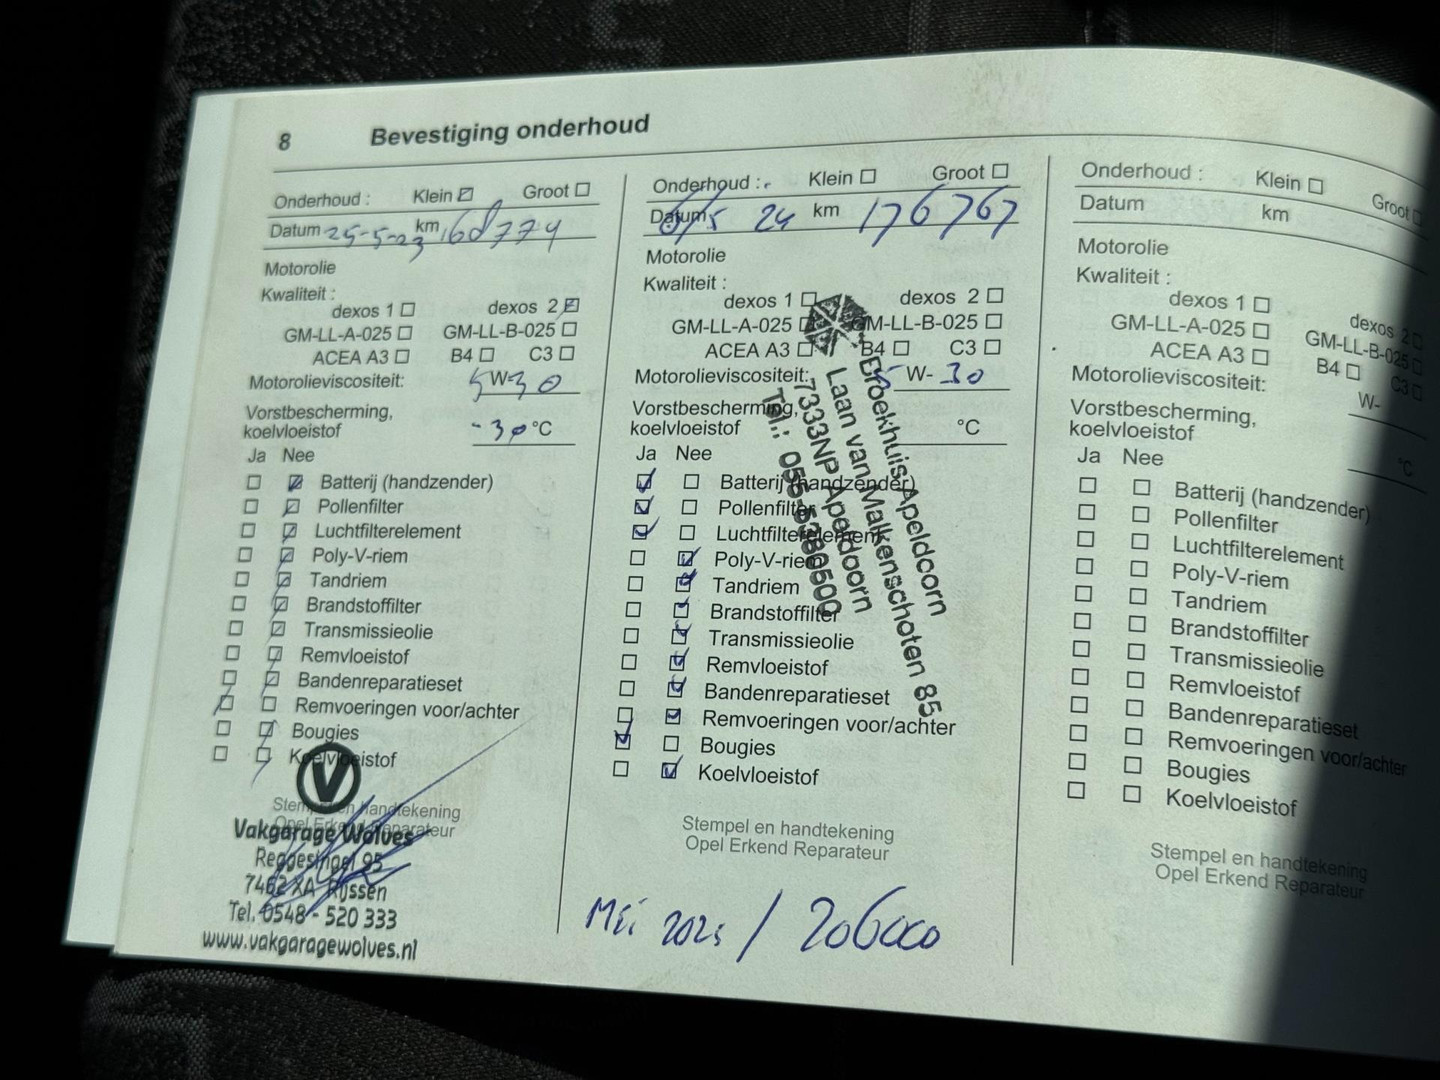 8 Bevestiging onderhoud
Onderhoud : Klein Groot
Datum 25-5-23 km 168774
Motorolie
Kwaliteit :
dexos 1 dexos 2
GM-LL-A-025 GM-LL-B-025
ACEA A3 B4 C3
Motorolieviscositeit: 5 W- 30
Vorstbescherming,
koelvloeistof -30 °C
Ja Nee
Batterij (handzender)
Pollenfilter
Luchtfilterelement
Poly-V-riem
Tandriem
Brandstoffilter
Transmissieolie
Remvloeistof
Bandenreparatieset
Remvoeringen voor/achter
Bougies
Koelvloeistof
Stempel en handtekening
Opel Erkend Reparateur
Vakgarage Wolves
Reggesingel 95
7462 XA Rijssen
Tel. 0548 - 520 333
www.vakgaragewolves.nl
Onderhoud : Klein Groot
Datum 6/5 24 km 176767
Motorolie
Kwaliteit :
dexos 1 dexos 2
GM-LL-A-025 GM-LL-B-025
ACEA A3 B4 C3
Motorolieviscositeit: 5 W- 30
Vorstbescherming,
koelvloeistof °C
Ja Nee
Batterij (handzender)
Pollenfilter
Luchtfilterelement
Poly-V-riem
Tandriem
Brandstoffilter
Transmissieolie
Remvloeistof
Bandenreparatieset
Remvoeringen voor/achter
Bougies
Koelvloeistof
Broekhuis Apeldoorn
Laan van Malkenschoten 85
7333NP Apeldoorn
Tel.: 055-5380500
Stempel en handtekening
Opel Erkend Reparateur
Mei / 206000
Onderhoud : Klein Groot
Datum km
Motorolie
Kwaliteit :
dexos 1 dexos 2
GM-LL-A-025 GM-LL-B-025
ACEA A3 B4 C3
Motorolieviscositeit: W-
Vorstbescherming,
koelvloeistof °C
Ja Nee
Batterij (handzender)
Pollenfilter
Luchtfilterelement
Poly-V-riem
Tandriem
Brandstoffilter
Transmissieolie
Remvloeistof
Bandenreparatieset
Remvoeringen voor/achter
Bougies
Koelvloeistof
Stempel en handtekening
Opel Erkend Reparateur